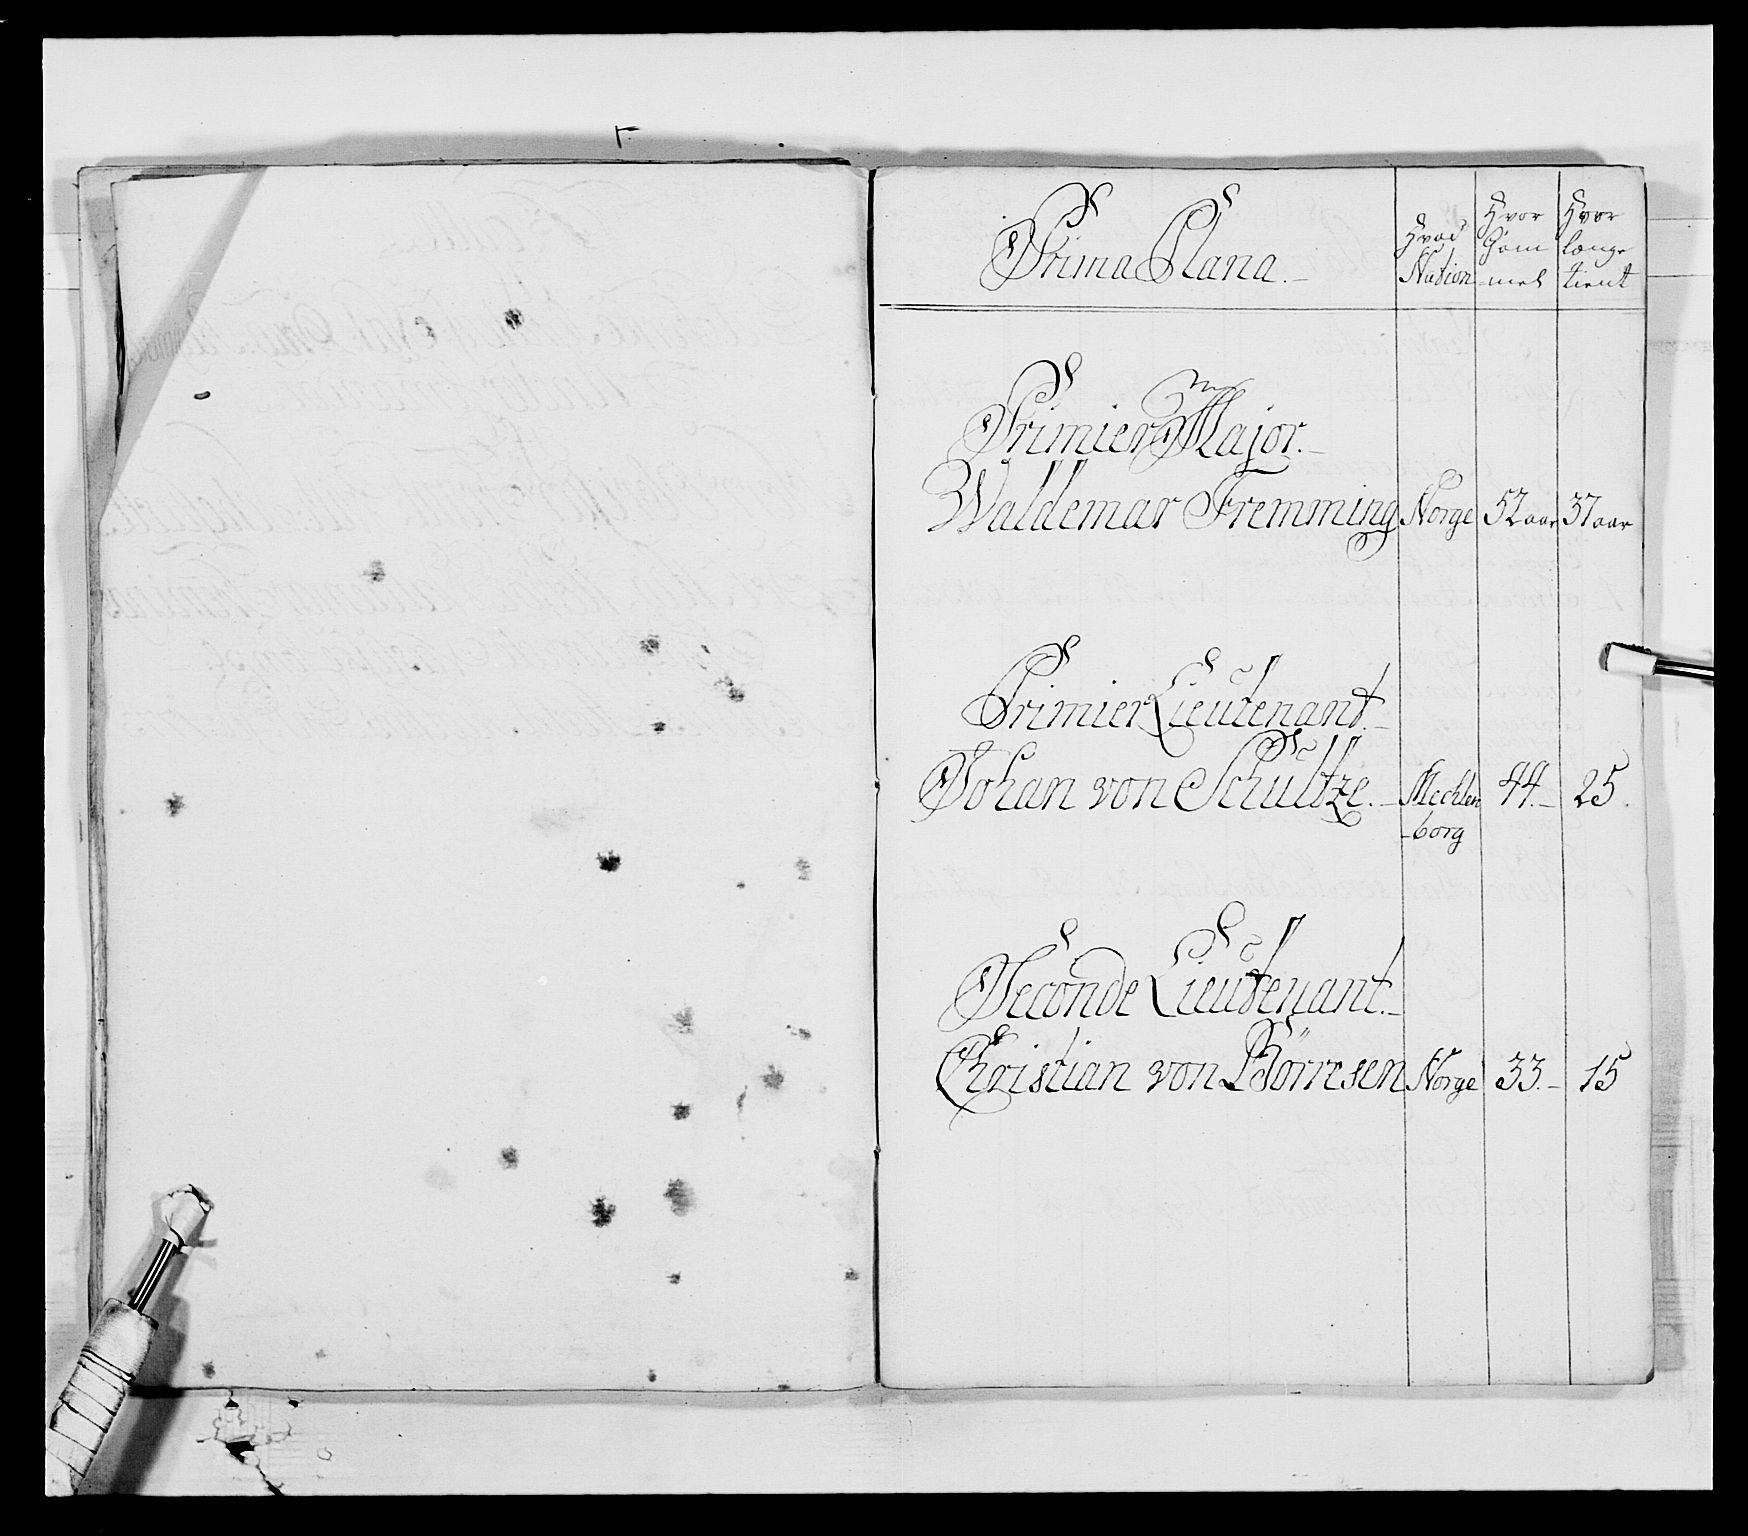 Prima Plana.
Hvad Nation
Hvor Gam-mel
Hvor længe tient
Primier Major.
Waldemar Fremming Norge 52 aar 37 aar
Primier Lieutenant.
Johan von Schultze. Mechlen 44. 25.
-borg
Seconde Lieutenant.
Christian von Börresen Norge 33. 15